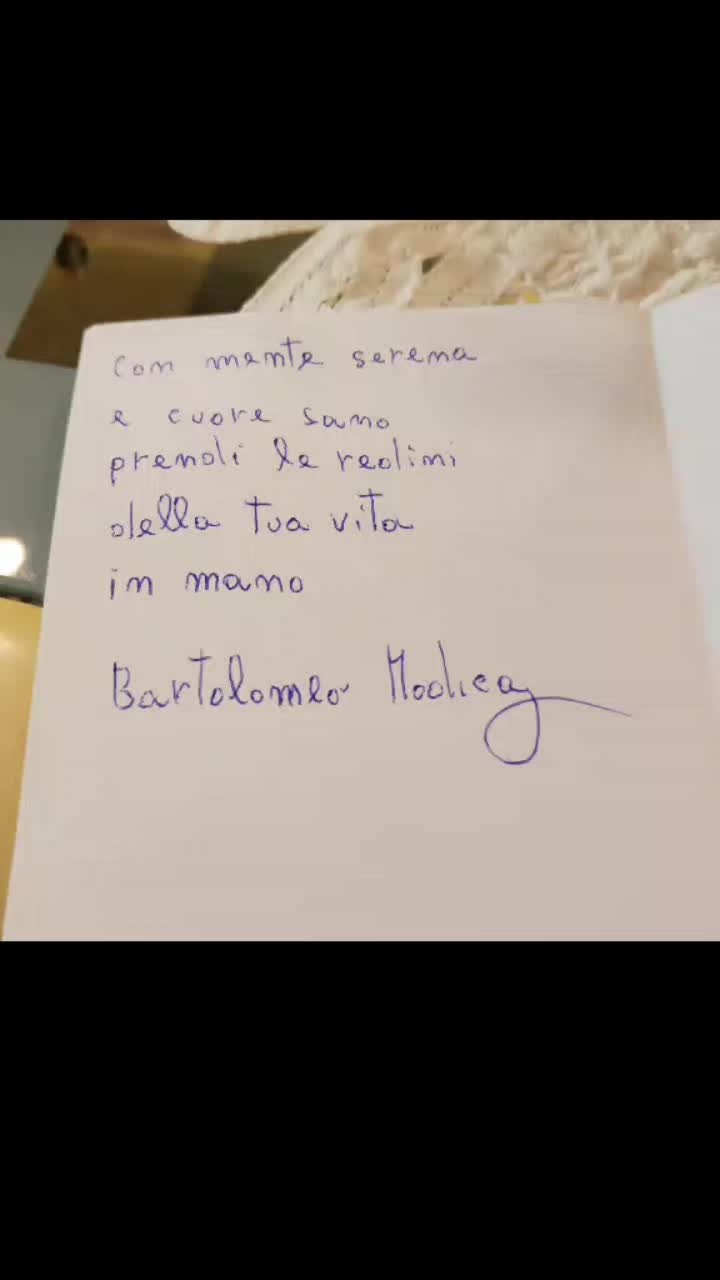 Con mente serena
e cuore sano
prendi le redini
della tua vita
in mano
Bartolomeo Modica